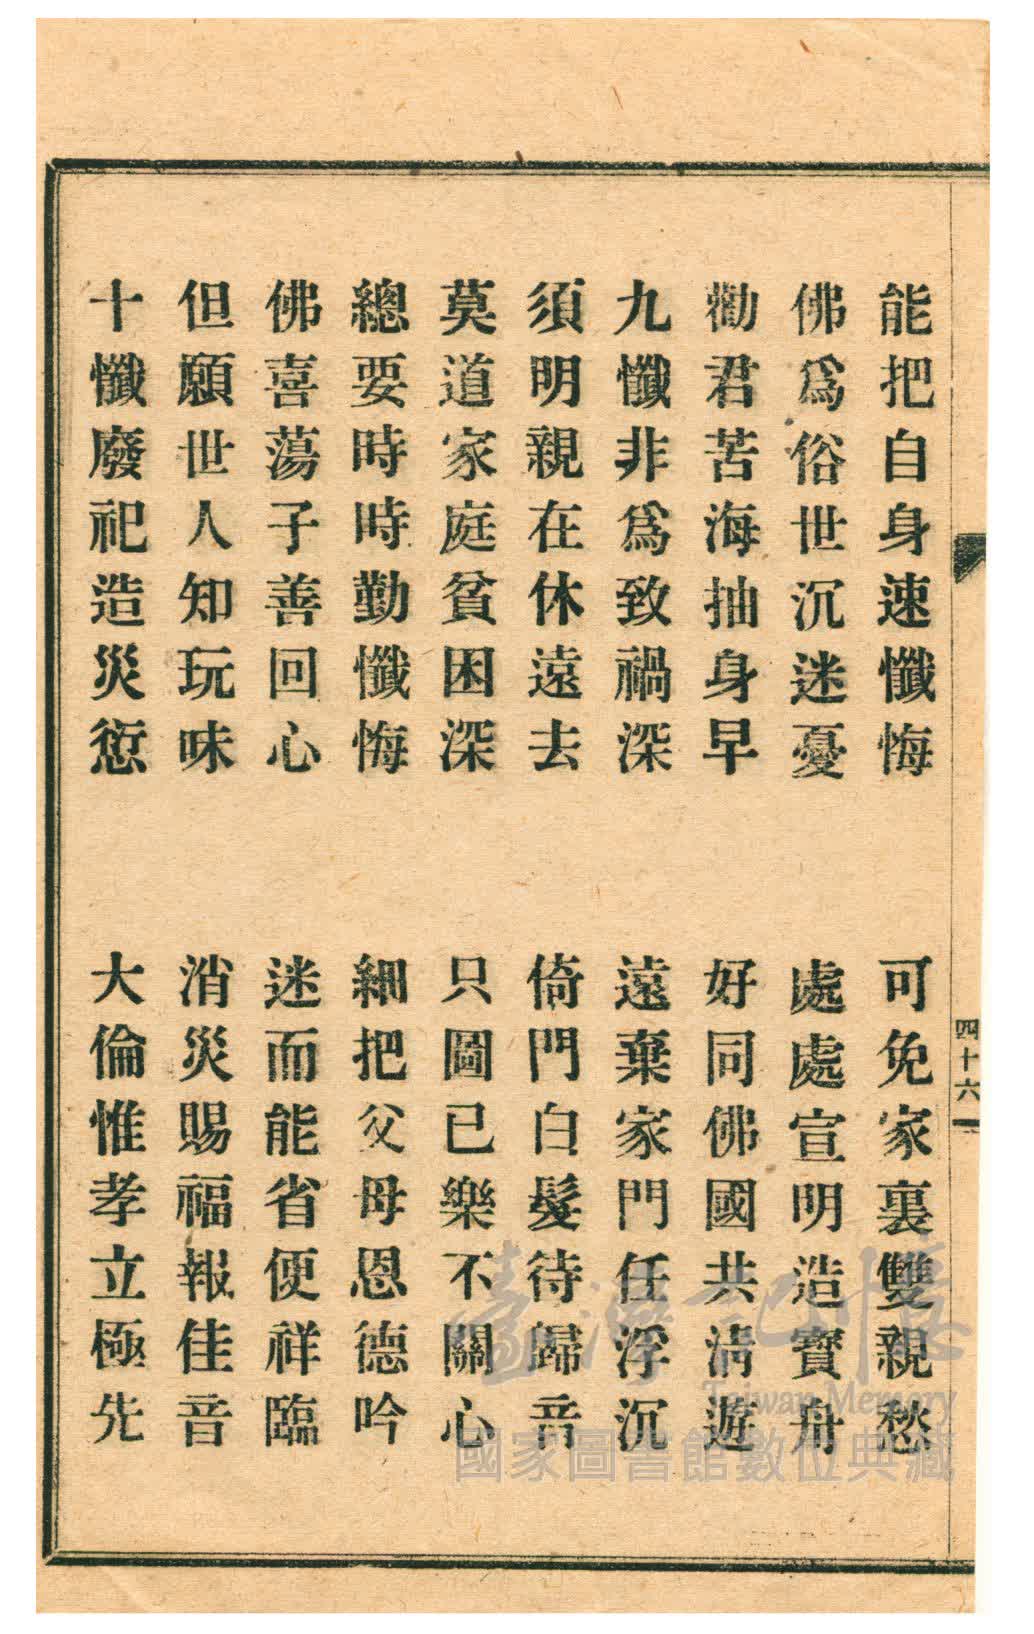 能把自身速懺悔　可免家裏雙親愁
佛爲俗世沉迷憂　處處宣明造寳舟
勸君苦海抽身早　好同佛國共清遊
九懺非爲致禍深　遠棄家門任浮沉
須明親在休遠去　倚門白髮待歸音
莫道家庭貧困深　只圖已樂不關心
總要時時勤懺悔　細把父母恩德吟
佛喜蕩子善回心　迷而能省便祥臨
但願世人知玩味　消災賜福報佳音
十懺廢祀造災愆　大倫惟孝立極先
四十六
臺灣記憶
Taiwan Memory
國家圖書館數位典藏